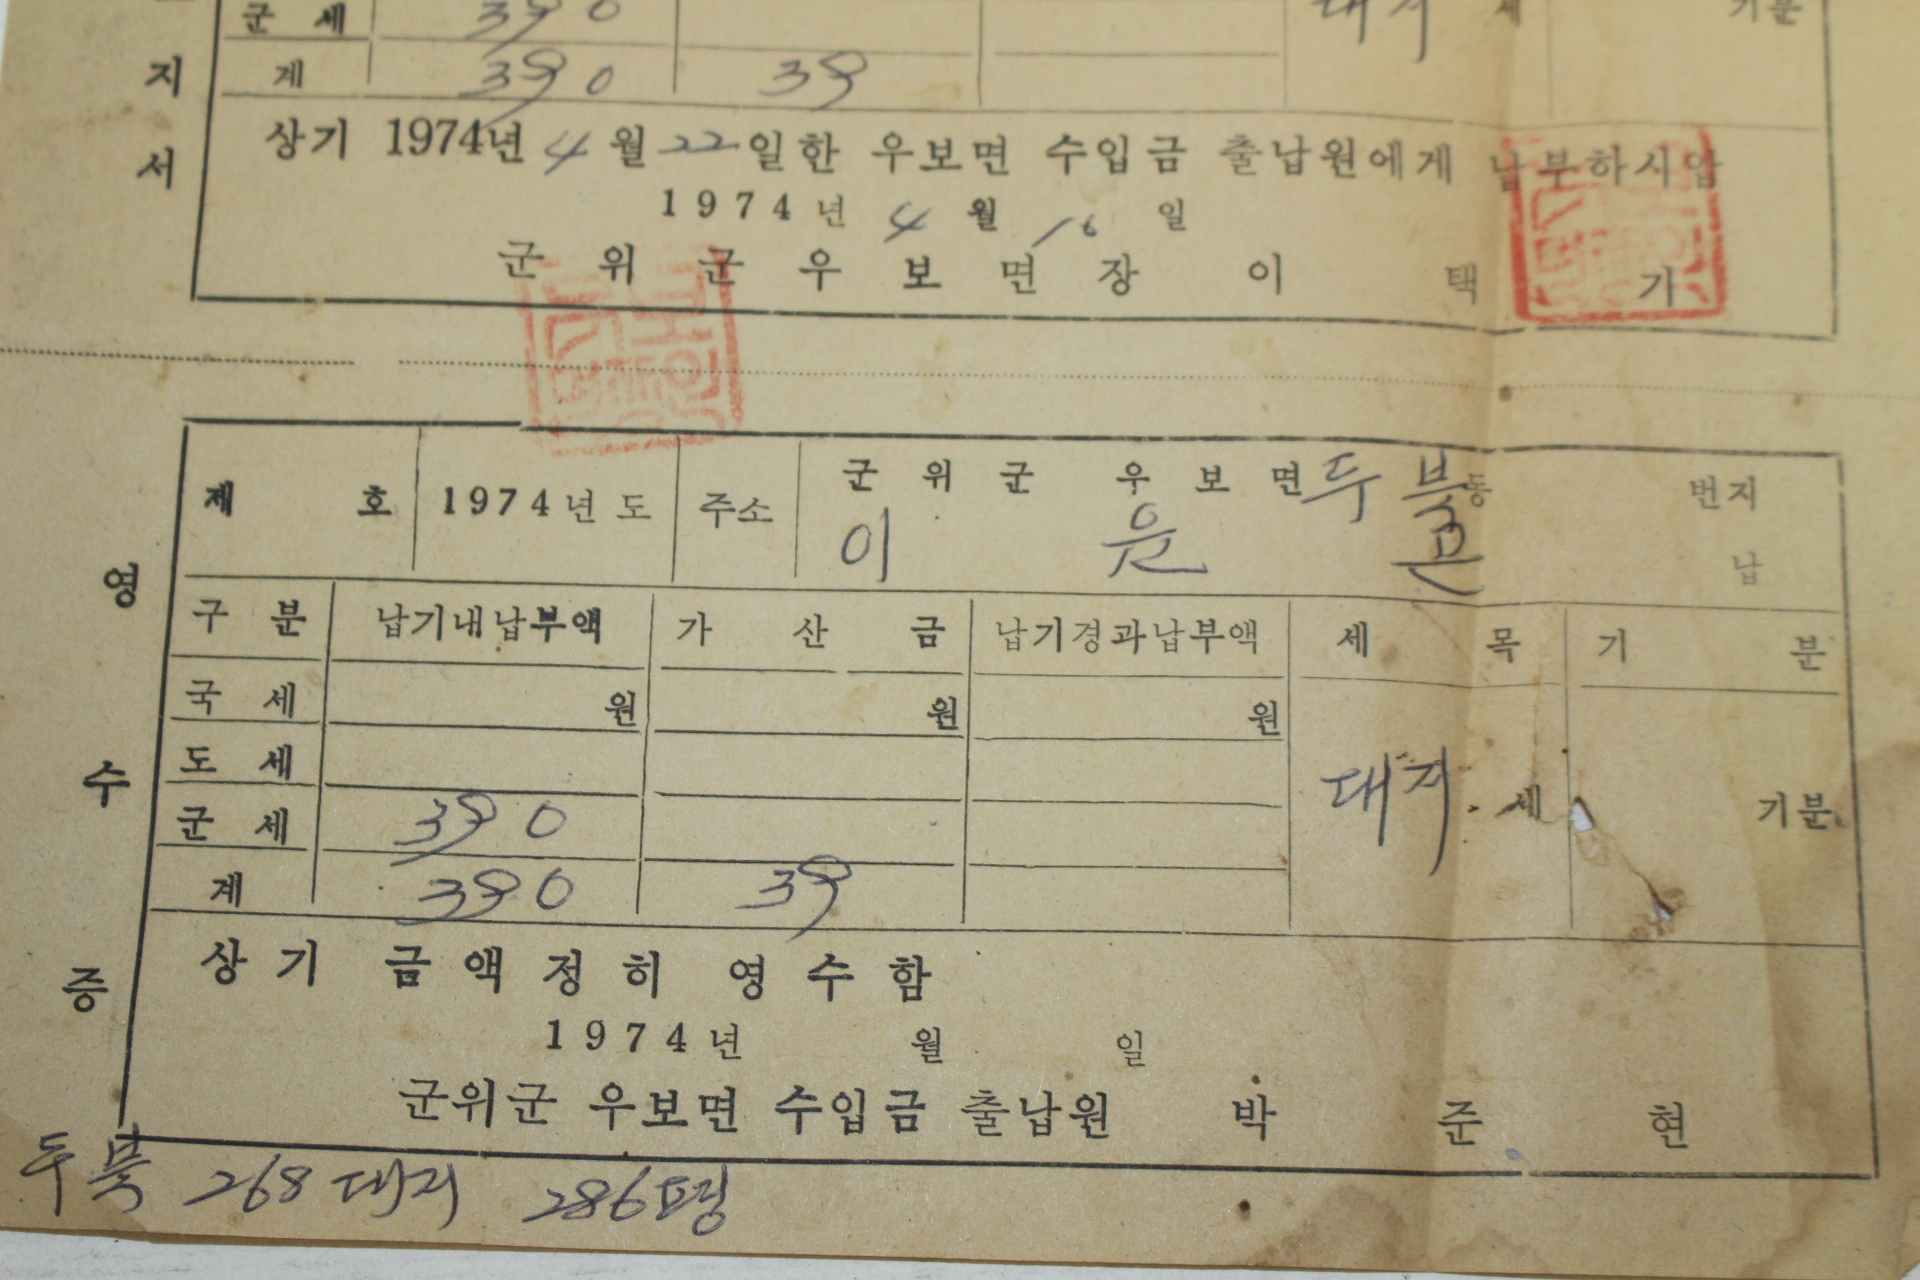 군 세 390 대지 세 기분
지
계 390 39
서
상기 1974년 4월 22일한 우보면 수입금 출납원에게 납부하시압
1974년 4월 16일
군 위 군 우 보 면 장 이 택 기
영 수 증
제 호 1974년도 주소 군 위 군 우 보 면 두북동 번지
이 윤 납
구 분 납기내납부액 가 산 금 납기경과납부액 세 목 기 분
국 세 원 원 원
도 세
군 세 390 대지 세 기분
계 390 39
상기 금액정히 영수함
1974년 월 일
군위군 우보면 수입금 출납원 박 준 현
두북 268 대지 286평